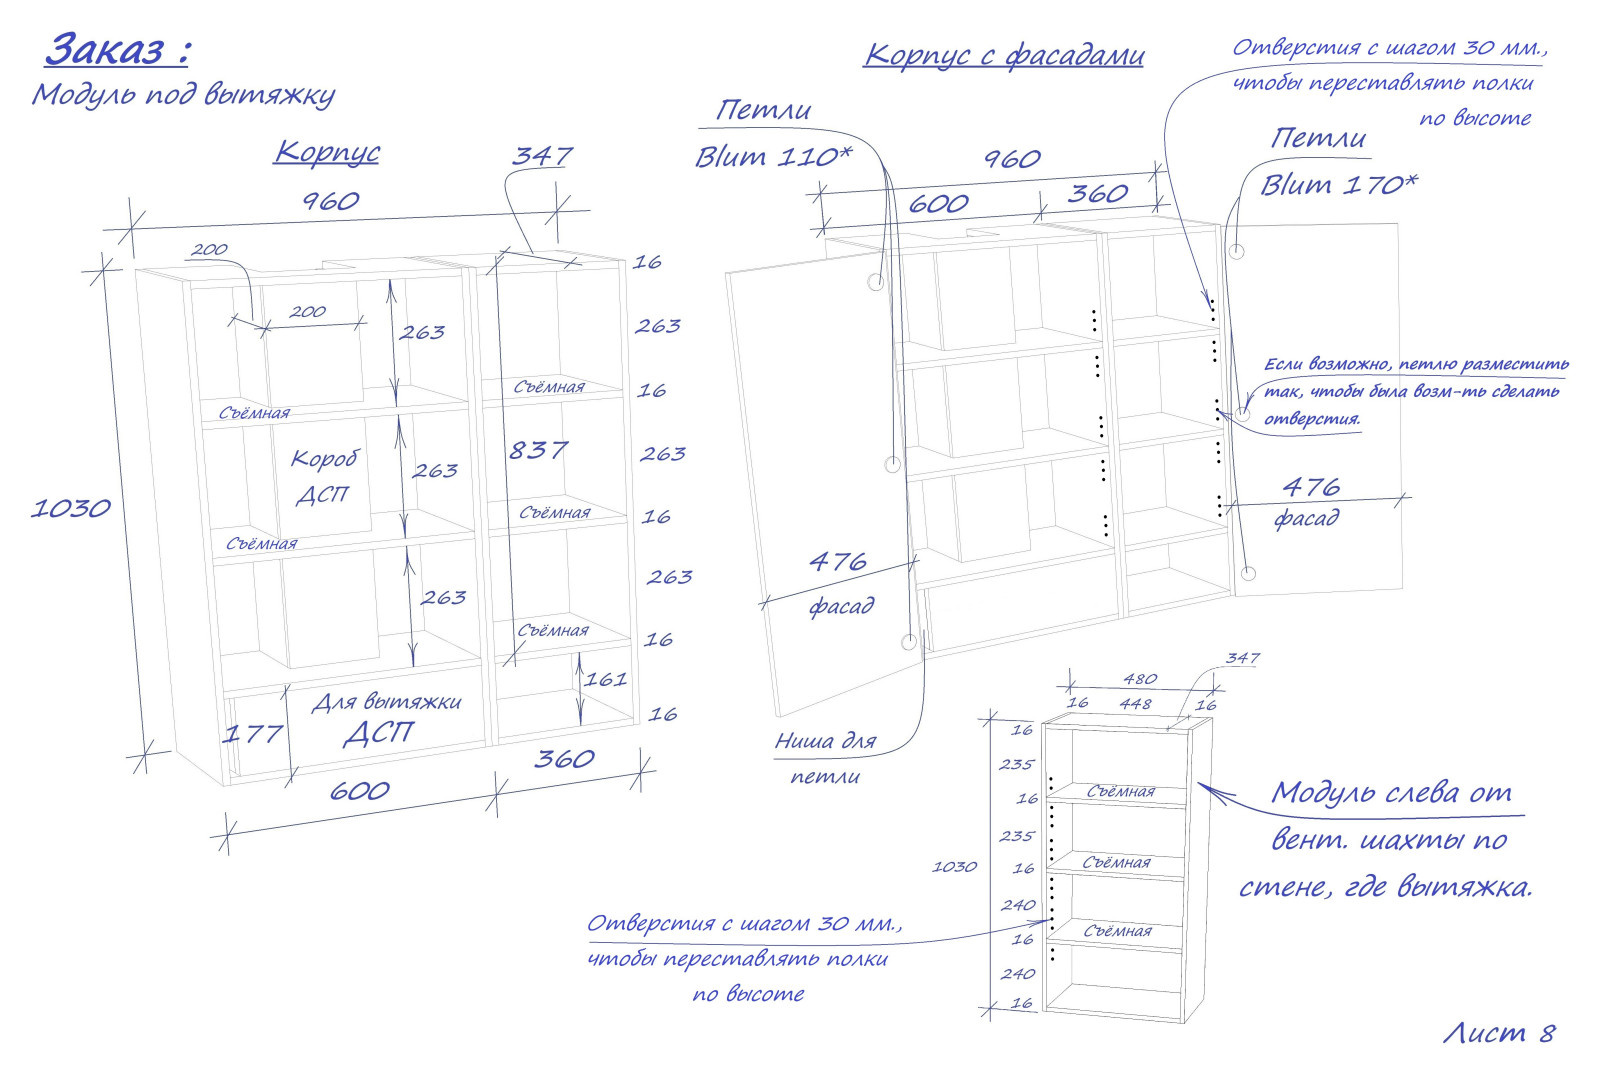 Заказ :
Модуль под вытяжку
Корпус
347
960
200
200
263
Съёмная
Съёмная
16
263
16
263
16
263
16
16
Короб
ДСП
263
837
Съёмная
Съёмная
1030
Съёмная
263
Съёмная
161
Для вытяжки
ДСП
177
600
360
Корпус с фасадами
Петли
Blum 110*
960
600
360
Отверстия с шагом 30 мм.,
чтобы переставлять полки
по высоте
Петли
Blum 170*
Если возможно, петлю разместить
так, чтобы была возм-ть сделать
отверстия.
476
фасад
476
фасад
Ниша для
петли
347
480
16
448
16
16
235
16
235
16
240
16
240
16
1030
Съёмная
Съёмная
Съёмная
Модуль слева от
вент. шахты по
стене, где вытяжка.
Отверстия с шагом 30 мм.,
чтобы переставлять полки
по высоте
Лист 8